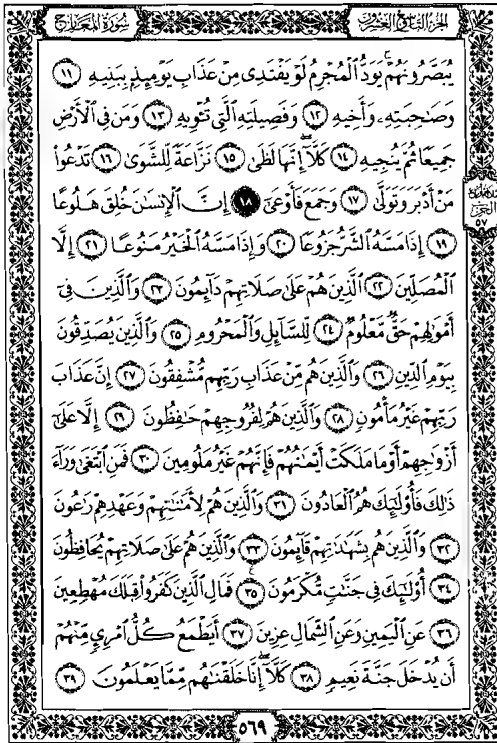 سورة المعارج
الجزء التاسع والعشرون
يُبَصَّرُونَهُمْ يَوَدُّ الْمُجْرِمُ لَوْ يَفْتَدِى مِنْ عَذَابِ يَوْمِئِذٍ بِبَنِيهِ ١١
وَصَٰحِبَتِهِ وَأَخِيهِ ١٢ وَفَصِيلَتِهِ الَّتِى تُـْٔوِيهِ ١٣ وَمَن فِى الْأَرْضِ
جَمِيعًا ثُمَّ يُنجِيهِ ١٤ كَلَّا إِنَّهَا لَظَىٰ ١٥ نَزَّاعَةً لِّلشَّوَىٰ ١٦ تَدْعُوا
مَنْ أَدْبَرَ وَتَوَلَّىٰ ١٧ وَجَمَعَ فَأَوْعَىٰ ١٨ إِنَّ الْإِنسَٰنَ خُلِقَ هَلُوعًا
١٩ إِذَا مَسَّهُ الشَّرُّ جَزُوعًا ٢٠ وَإِذَا مَسَّهُ الْخَيْرُ مَنُوعًا ٢١ إِلَّا
الْمُصَلِّينَ ٢٢ الَّذِينَ هُمْ عَلَىٰ صَلَاتِهِمْ دَآئِمُونَ ٢٣ وَالَّذِينَ فِىٓ
أَمْوَٰلِهِمْ حَقٌّ مَّعْلُومٌ ٢٤ لِّلسَّآئِلِ وَالْمَحْرُومِ ٢٥ وَالَّذِينَ يُصَدِّقُونَ
بِيَوْمِ الدِّينِ ٢٦ وَالَّذِينَ هُم مِّنْ عَذَابِ رَبِّهِم مُّشْفِقُونَ ٢٧ إِنَّ عَذَابَ
رَبِّهِمْ غَيْرُ مَأْمُونٍ ٢٨ وَالَّذِينَ هُمْ لِفُرُوجِهِمْ حَٰفِظُونَ ٢٩ إِلَّا عَلَىٰٓ
أَزْوَٰجِهِمْ أَوْ مَا مَلَكَتْ أَيْمَٰنُهُمْ فَإِنَّهُمْ غَيْرُ مَلُومِينَ ٣٠ فَمَنِ ابْتَغَىٰ وَرَآءَ
ذَٰلِكَ فَأُو۟لَٰٓئِكَ هُمُ الْعَادُونَ ٣١ وَالَّذِينَ هُمْ لِأَمَٰنَٰتِهِمْ وَعَهْدِهِمْ رَٰعُونَ
٣٢ وَالَّذِينَ هُم بِشَهَٰدَٰتِهِمْ قَآئِمُونَ ٣٣ وَالَّذِينَ هُمْ عَلَىٰ صَلَاتِهِمْ يُحَافِظُونَ
٣٤ أُو۟لَٰٓئِكَ فِى جَنَّٰتٍ مُّكْرَمُونَ ٣٥ فَمَالِ الَّذِينَ كَفَرُوا قِبَلَكَ مُهْطِعِينَ
٣٦ عَنِ الْيَمِينِ وَعَنِ الشِّمَالِ عِزِينَ ٣٧ أَيَطْمَعُ كُلُّ امْرِئٍ مِّنْهُمْ
أَن يُدْخَلَ جَنَّةَ نَعِيمٍ ٣٨ كَلَّا إِنَّا خَلَقْنَٰهُم مِّمَّا يَعْلَمُونَ ٣٩
الحزب
٥٧
٥٦٩